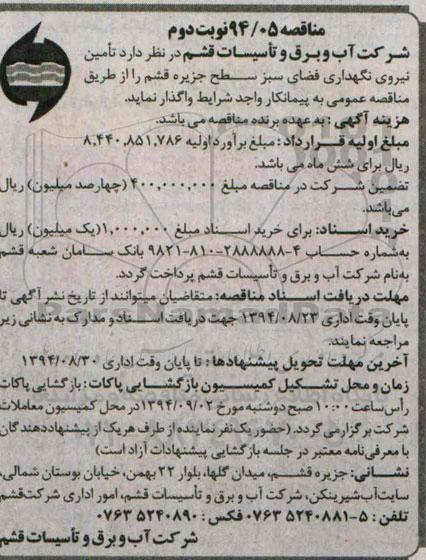 مناقصه ۹۴/۰۵ نوبت دوم
شرکت آب و برق و تأسیسات قشم در نظر دارد تأمین
نیروی نگهداری فضای سبز سطح جزیره قشم را از طریق
مناقصه عمومی به پیمانکار واجد شرایط واگذار نماید.
هزینه آگهی : به عهده برنده مناقصه می باشد.
مبلغ اولیه قرارداد : مبلغ برآورد اولیه ۸,۴۴۰,۸۵۱,۷۸۶
ریال برای شش ماه می باشد.
تضمین شرکت در مناقصه مبلغ ۴۰۰,۰۰۰,۰۰۰ (چهارصد میلیون) ریال
می‌باشد.
خرید اسناد: برای خرید اسناد مبلغ ۱,۰۰۰,۰۰۰(یک میلیون) ریال
به‌شماره حساب ۴-۲۸۸۸۸۸۸-۸۱۰-۹۸۲۱ بانک سامان شعبه قشم
به‌نام شرکت آب و برق و تأسیسات قشم پرداخت گردد.
مهلت دریافت اسناد مناقصه: متقاضیان میتوانند از تاریخ نشر آگهی تا
پایان وقت اداری ۱۳۹۴/۰۸/۲۳ جهت دریافت اسناد و مدارک به نشانی زیر
مراجعه نمایند.
آخرین مهلت تحویل پیشنهادها : تا پایان وقت اداری ۱۳۹۴/۰۸/۳۰
زمان و محل تشکیل کمیسیون بازگشایی پاکات: بازگشایی پاکات
رأس ساعت ۱۰:۰۰ صبح دوشنبه مورخ ۱۳۹۴/۰۹/۰۲در محل کمیسیون معاملات
شرکت برگزار می گردد. (حضور یک نفر نماینده از طرف هر یک از پیشنهاددهندگان
با معرفی‌نامه معتبر در جلسه بازگشایی پیشنهادات آزاد است)
نشانی: جزیره قشم، میدان گلها، بلوار ۲۲ بهمن، خیابان بوستان شمالی،
سایت آب‌شیرینکن، شرکت آب و برق و تأسیسات قشم، امور اداری شرکت‌قشم
تلفن : ۵-۵۲۴۰۸۸۱ ۰۷۶۳ فکس : ۵۲۴۰۸۹۰ ۰۷۶۳
شرکت آب و برق و تأسیسات قشم